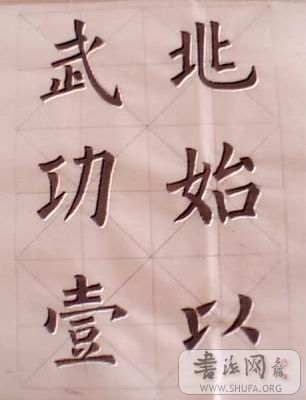 兆始以
武功壹
書法网
WWW.SHUFA.ORG